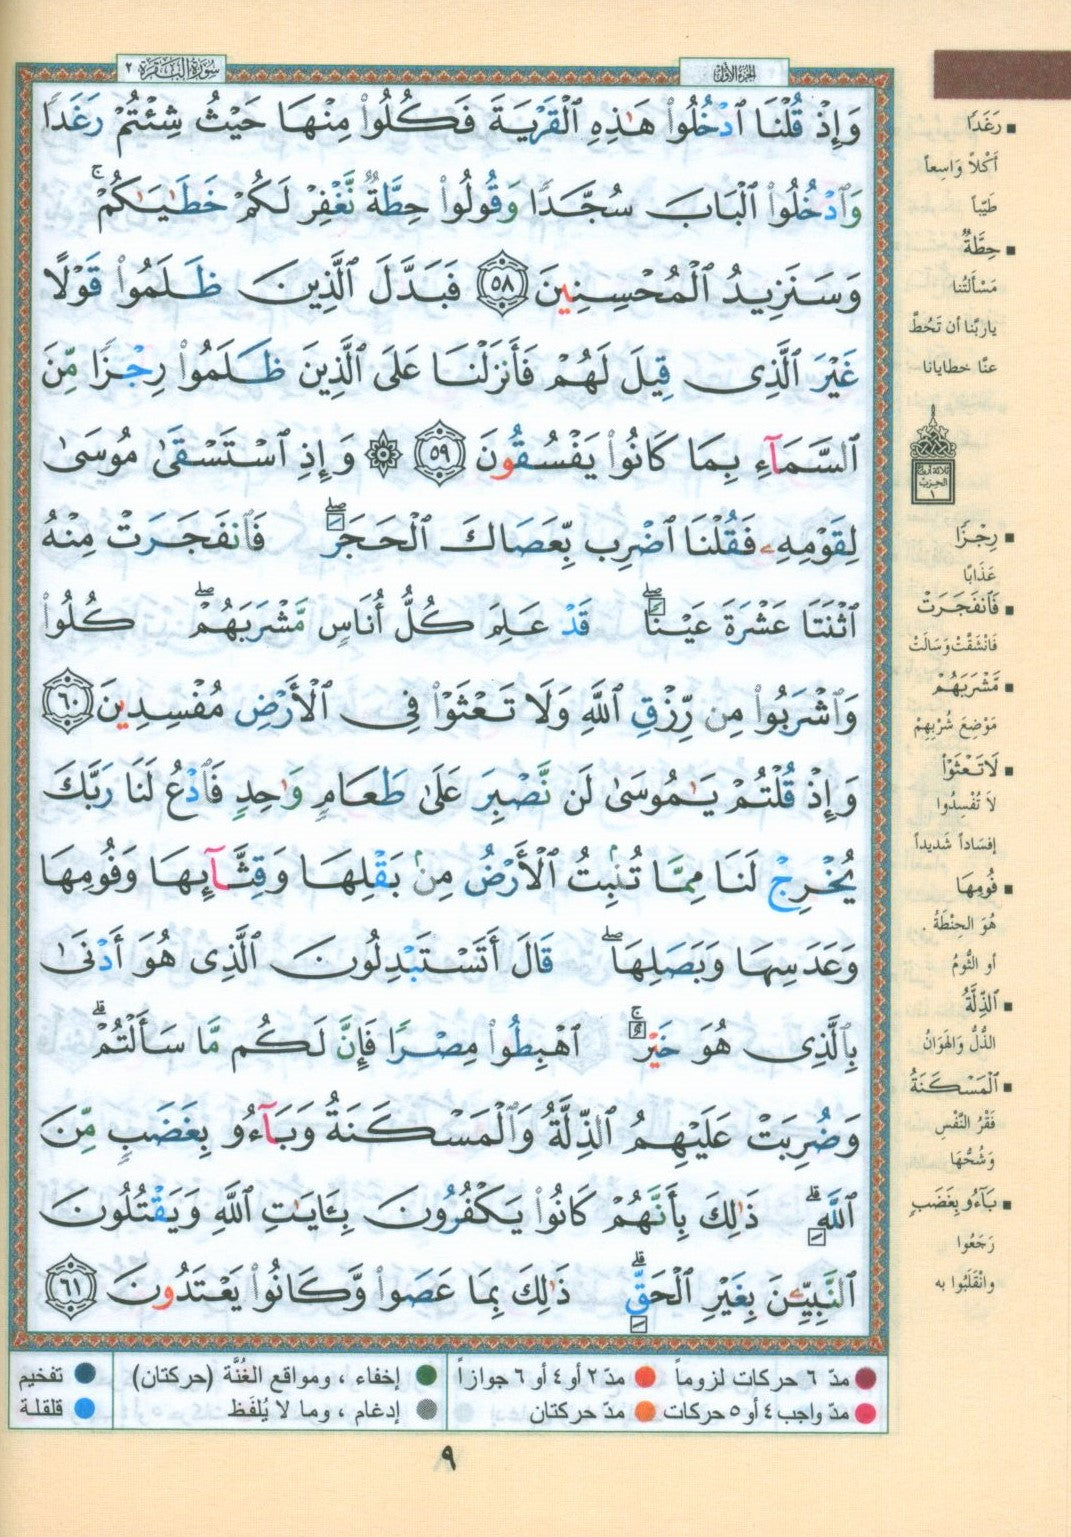 سُورَةُ البَقَرَة ٢
الجزء الأول
وَإِذْ قُلْنَا ٱدْخُلُوا۟ هَٰذِهِ ٱلْقَرْيَةَ فَكُلُوا۟ مِنْهَا حَيْثُ شِئْتُمْ رَغَدًا
وَٱدْخُلُوا۟ ٱلْبَابَ سُجَّدًا وَقُولُوا۟ حِطَّةٌ نَّغْفِرْ لَكُمْ خَطَٰيَٰكُمْ ۚ
وَسَنَزِيدُ ٱلْمُحْسِنِينَ ٥٨ فَبَدَّلَ ٱلَّذِينَ ظَلَمُوا۟ قَوْلًا
غَيْرَ ٱلَّذِى قِيلَ لَهُمْ فَأَنزَلْنَا عَلَى ٱلَّذِينَ ظَلَمُوا۟ رِجْزًا مِّنَ
ٱلسَّمَآءِ بِمَا كَانُوا۟ يَفْسُقُونَ ٥٩ ۞ وَإِذِ ٱسْتَسْقَىٰ مُوسَىٰ
لِقَوْمِهِۦ فَقُلْنَا ٱضْرِب بِّعَصَاكَ ٱلْحَجَرَ ۖ فَٱنفَجَرَتْ مِنْهُ
ٱثْنَتَا عَشْرَةَ عَيْنًا ۖ قَدْ عَلِمَ كُلُّ أُنَاسٍ مَّشْرَبَهُمْ ۖ كُلُوا۟
وَٱشْرَبُوا۟ مِن رِّزْقِ ٱللَّهِ وَلَا تَعْثَوْا۟ فِى ٱلْأَرْضِ مُفْسِدِينَ ٦٠
وَإِذْ قُلْتُمْ يَٰمُوسَىٰ لَن نَّصْبِرَ عَلَىٰ طَعَامٍ وَٰحِدٍ فَٱدْعُ لَنَا رَبَّكَ
يُخْرِجْ لَنَا مِمَّا تُنۢبِتُ ٱلْأَرْضُ مِنۢ بَقْلِهَا وَقِثَّآئِهَا وَفُومِهَا
وَعَدَسِهَا وَبَصَلِهَا ۖ قَالَ أَتَسْتَبْدِلُونَ ٱلَّذِى هُوَ أَدْنَىٰ
بِٱلَّذِى هُوَ خَيْرٌ ۚ ٱهْبِطُوا۟ مِصْرًا فَإِنَّ لَكُم مَّا سَأَلْتُمْ ۗ
وَضُرِبَتْ عَلَيْهِمُ ٱلذِّلَّةُ وَٱلْمَسْكَنَةُ وَبَآءُو بِغَضَبٍ مِّنَ
ٱللَّهِ ۗ ذَٰلِكَ بِأَنَّهُمْ كَانُوا۟ يَكْفُرُونَ بِـَٔايَٰتِ ٱللَّهِ وَيَقْتُلُونَ
ٱلنَّبِيِّـۧنَ بِغَيْرِ ٱلْحَقِّ ۗ ذَٰلِكَ بِمَا عَصَوا۟ وَّكَانُوا۟ يَعْتَدُونَ ٦١
رَغَدًا
أَكْلًا وَاسِعاً
طَيّباً
حِطَّةٌ
مَسْأَلَتُنا
ياربَّنا أن تَحُطَّ
عنَّا خطايانا
ثلاثة أرباع
الحزب
١
رِجْزًا
عَذَابًا
فَٱنفَجَرَتْ
فَانْشَقَّتْ وَسَالَتْ
مَّشْرَبَهُمْ
مَوْضِعَ شُرْبِهِمْ
لَا تَعْثَوْا۟
لَا تُفْسِدُوا
إفسَاداً شَديداً
فُومِهَا
هُوَ الحِنْطَةُ .
أو الثُّومُ
ٱلذِّلَّةُ
الذُّلُّ وَالهَوَانُ
ٱلْمَسْكَنَةُ
فَقْرُ النَّفْسِ
وَشُحُّهَا
بَآءُو بِغَضَبٍ
رَجَعُوا
وانْقَلَبُوا به
مدّ ٦ حركات لزوماً
مدّ ٢ أو ٤ أو ٦ جوازاً
إخفاء ، ومواقع الغُنَّة (حركتان)
تفخيم
مدّ واجب ٤ أو ٥ حركات
مدّ حركتان
إدغام ، وما لا يُلفَظ
قلقلة
٩